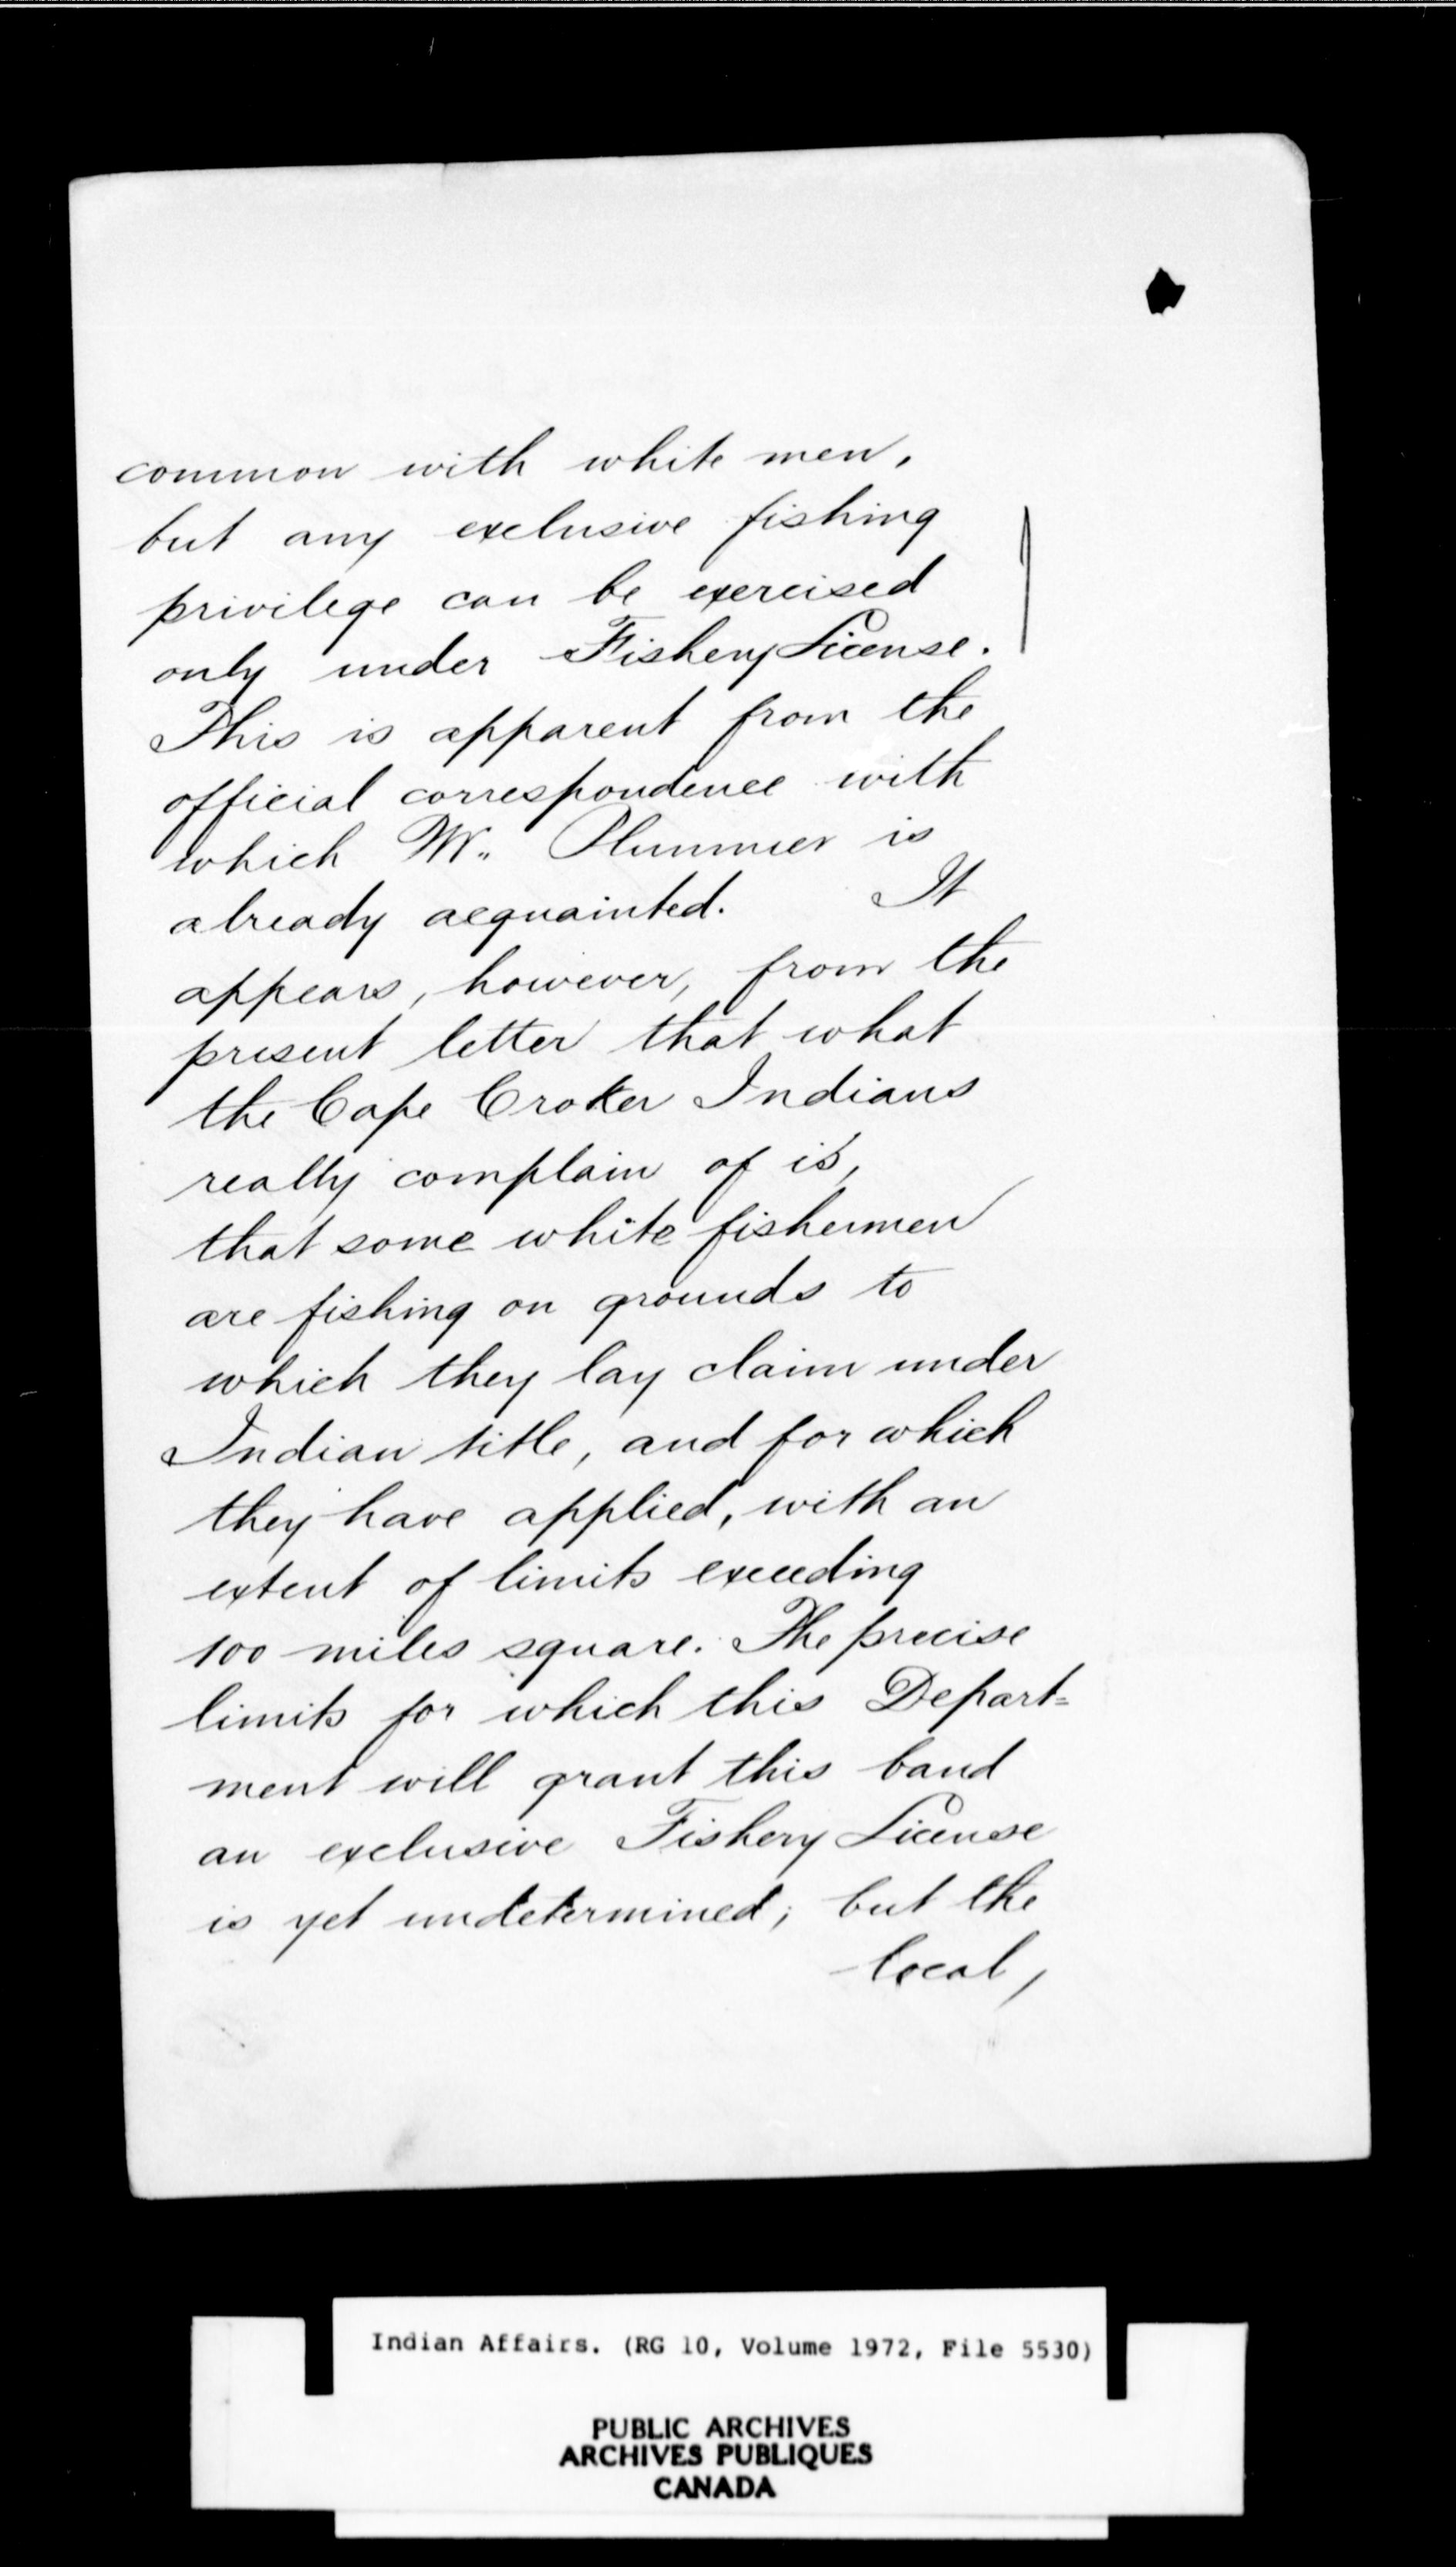 common with white men,
but any exclusive fishing
privilege can be exercised
only under Fishery License.
This is apparent from the
official correspondence with
which Mr. Plummer is
already acquainted. It
appears, however, from the
present letter that what
the Cape Croker Indians
really complain of is,
that some white fishermen
are fishing on grounds to
which they lay claim under
Indian title, and for which
they have applied, with an
extent of limits exceeding
100 miles square. The precise
limits for which this Depart=
ment will grant this band
an exclusive Fishery License
is yet undetermined; but the
local,
Indian Affairs. (RG 10, Volume 1972, File 5530)
PUBLIC ARCHIVES
ARCHIVES PUBLIQUES
CANADA